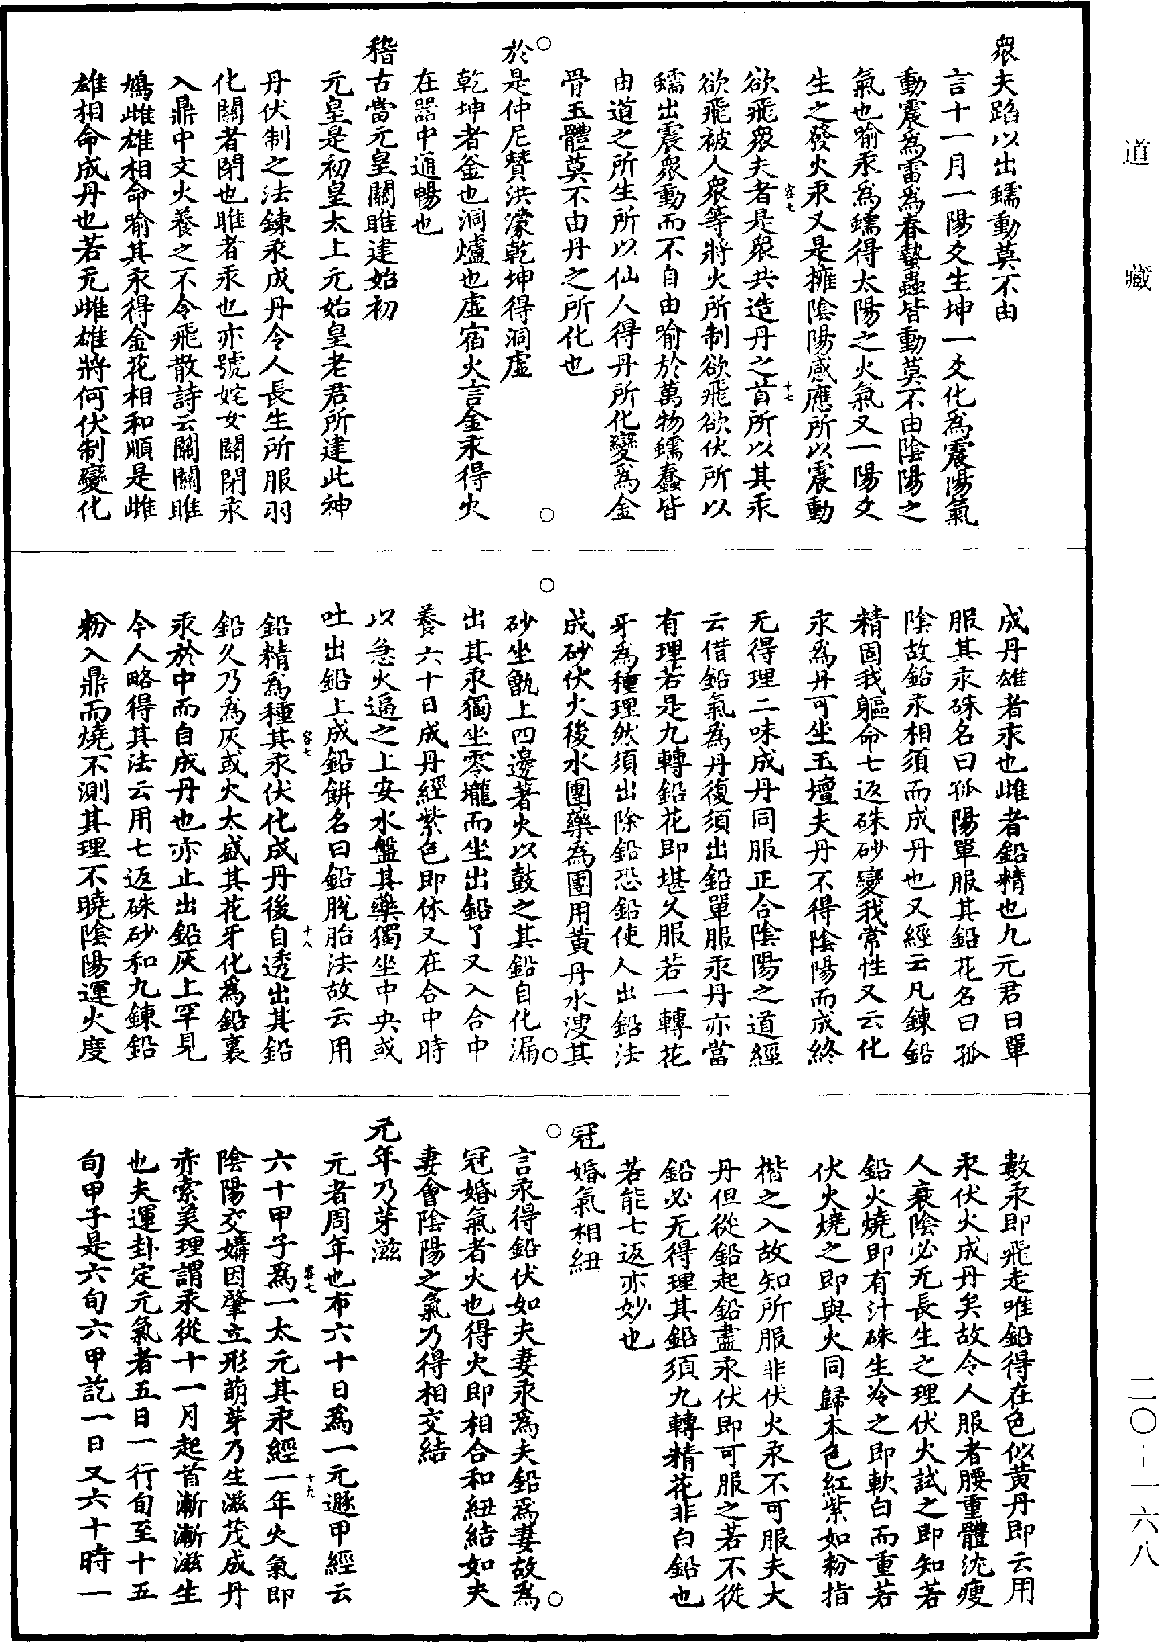 衆夫蹈以出蠕動莫不由
言十一月一陽爻生坤一爻化為震陽氣
動震為雷為春蟄蟲皆動莫不由陰陽之
氣也喻汞為蠕得太陽之火氣又一陽爻
生之發火汞又是擁陰陽感應所以震動
欲飛衆夫者是衆共造丹之首所以其汞
欲飛被人衆等將火所制欲飛欲伏所以
蠕出震衆動而不自由喻於萬物蠕蠢皆
由道之所生所以仙人得丹所化變為金
骨玉體莫不由丹之所化也
於是仲尼贊洪濛乾坤得洞虛
乾坤者釜也洞爐也虛宿火言金汞得火
在器中通暢也
稽古當元皇關雎建始初
元皇是初皇太上元始皇老君所建此神
丹伏制之法鍊汞成丹令人長生所服羽
化關者閉也雎者汞也亦號姹女關閉汞
入鼎中文火養之不令飛散詩云關關雎
鳩雌雄相命喻其汞得金花相和順是雌
雄相命成丹也若无雌雄將何伏制變化
成丹雄者汞也雌者鉛精也九元君曰單
服其汞硃名曰孤陽單服其鉛花名曰孤
陰故鉛汞相須而成丹也又經云凡鍊鉛
精固我軀命七返硃砂變我常性又云化
汞為丹可坐玉壇夫丹不得陰陽而成終
无得理二味成丹同服正合陰陽之道經
云借鉛氣為丹復須出鉛單服汞丹亦當
有理若是九轉鉛花即堪久服若一轉花
牙為種理然須出除鉛恐鉛使人出鉛法
成砂伏火後水團藥為團用黃丹水溲其
砂坐甑上四邊著火以鼓之其鉛自化漏
出其汞獨坐零壠而坐出鉛了又入合中
養六十日成丹經紫色即休又在合中時
以急火逼之上安水盤其藥獨坐中央或
吐出鉛上成鉛餅名曰鉛脫胎法故云用
鉛精為種其汞伏化成丹後自透出其鉛
鉛久乃為灰或火太盛其花牙化為鉛裹
汞於中而自成丹也亦止出鉛灰上罕見
今人略得其法云用七返硃砂和九鍊鉛
粉入鼎而燒不測其理不曉陰陽運火度
數汞即飛走唯鉛得在色似黃丹即云用
汞伏火成丹矣故令人服者腰重體沈瘦
人衰陰必无長生之理伏火試之即知若
鉛火燒即有汁硃生冷之即軟白而重若
伏火燒之即與火同歸本色紅紫如粉指
楷之入故知所服非伏火汞不可服夫大
丹但從鉛起鉛盡汞伏即可服之若不從
鉛必无得理其鉛須九轉精花非白鉛也
若能七返亦妙也
冠婚氣相紐
言汞得鉛伏如夫妻汞為夫鉛為妻故為
冠婚氣者火也得火即相合和紐結如夫
妻會陰陽之氣乃得相交結
元年乃芽滋
元者周年也布六十日為一元遯甲經云
六十甲子為一太元其汞經一年火氣即
陰陽交媾因肇立形萌芽乃生滋茂成丹
亦索美理謂汞從十一月起首漸漸滋生
也夫運卦定元氣者五日一行旬至十五
旬甲子是六旬六甲訖一日又六十時一
容七
十七
容七
十八
容七
十九
道藏
二〇-一六八